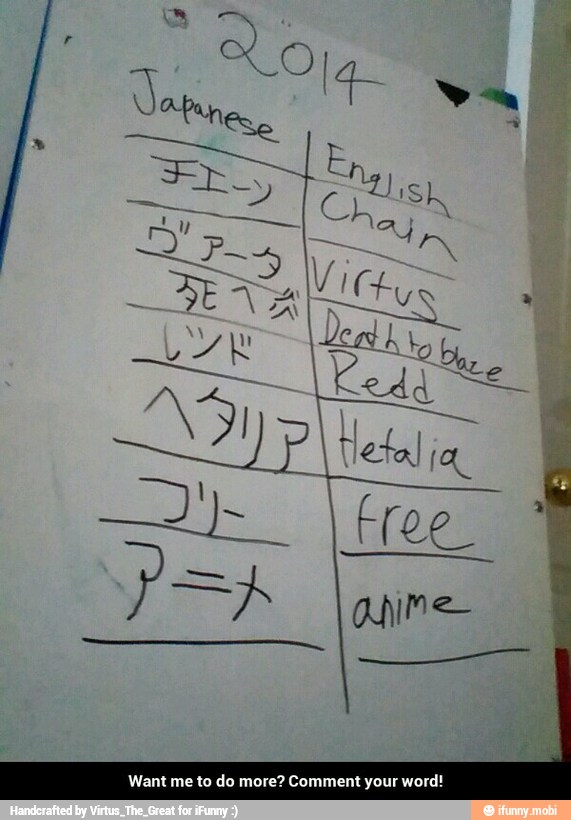 2014
Japanese English
チエーン Chain
ヴァータ Virtus
死へ Death to blaze
レンド Redd
ヘタリア Hetalia
フリー free
アニメ anime
Want me to do more? Comment your word!
Handcrafted by Virtus_The_Great for iFunny :) ifunny.mobi